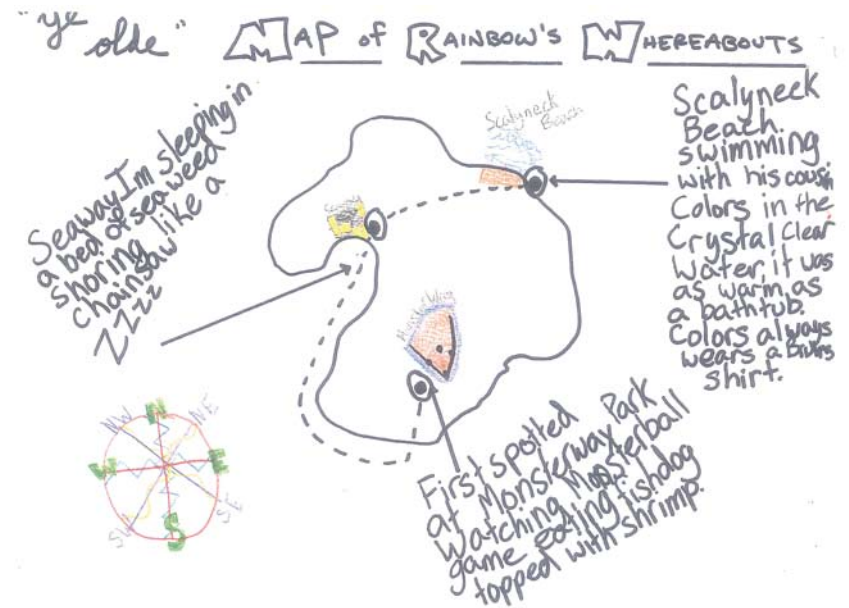 "ye olde" MAP of RAINBOW'S WHEREABOUTS
Seaway Im sleeping in
a bed of seaweed
snoring like a
chainsaw
ZZzz
Scalyneck
Beach
Scalyneck
Beach.
swimming
with his cousin
Colors in the
Crystal Clear
Water, it was
as warm as
a bathtub.
Colors always
wears a Bruins
shirt.
First spotted
at Monsterway Park
Watching Monsterball
game eating fishdog
topped with shrimp.
N
NE
E
SE
S
SW
W
NW